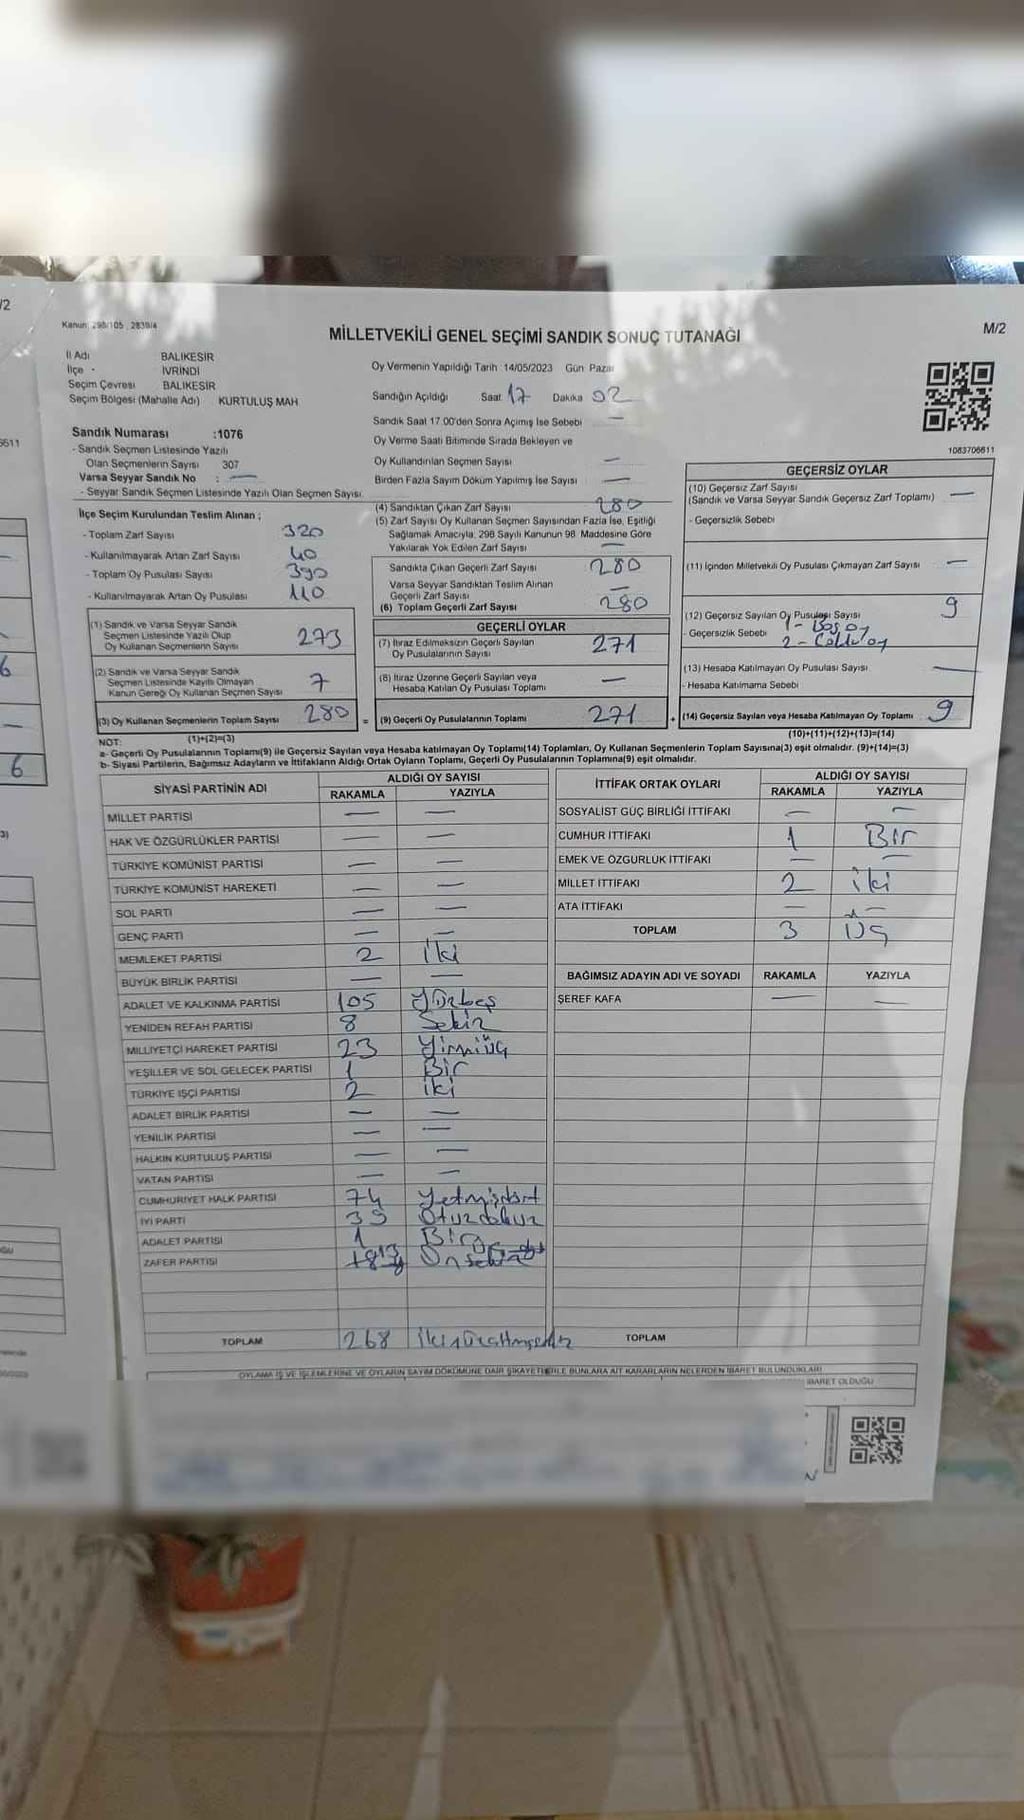 /2
M/2
Kanun: 298/105 , 2839/4
MİLLETVEKİLİ GENEL SEÇİMİ SANDIK SONUÇ TUTANAĞI
İl Adı BALIKESİR
İlçe İVRİNDİ
Seçim Çevresi BALIKESİR
Seçim Bölgesi (Mahalle Adı) KURTULUŞ MAH
Sandık Numarası :1076
- Sandık Seçmen Listesinde Yazılı
Olan Seçmenlerin Sayısı 307
Varsa Seyyar Sandık No : —
- Seyyar Sandık Seçmen Listesinde Yazılı Olan Seçmen Sayısı
Oy Vermenin Yapıldığı Tarih :14/05/2023 Gün: Pazar
Sandığın Açıldığı Saat 17 Dakika 02
Sandık Saat 17.00'den Sonra Açımış İse Sebebi —
Oy Verme Saati Bitiminde Sırada Bekleyen ve
Oy Kullandırılan Seçmen Sayısı —
Birden Fazla Sayım Döküm Yapılmış İse Sayısı —
1083706611
İlçe Seçim Kurulundan Teslim Alınan ;
- Toplam Zarf Sayısı 320
- Kullanılmayarak Artan Zarf Sayısı 40
- Toplam Oy Pusulası Sayısı 390
- Kullanılmayarak Artan Oy Pusulası 110
(1) Sandık ve Varsa Seyyar Sandık
Seçmen Listesinde Yazılı Olup
Oy Kullanan Seçmenlerin Sayısı 273
(2) Sandık ve Varsa Seyyar Sandık
Seçmen Listesinde Kayıtlı Olmayan
Kanun Gereği Oy Kullanan Seçmen Sayısı 7
(3) Oy Kullanan Seçmenlerin Toplam Sayısı 280
(1)+(2)=(3)
(4) Sandıktan Çıkan Zarf Sayısı 280
(5) Zarf Sayısı Oy Kullanan Seçmen Sayısından Fazla İse, Eşitliği
Sağlamak Amacıyla, 298 Sayılı Kanunun 98. Maddesine Göre
Yakılarak Yok Edilen Zarf Sayısı —
Sandıkta Çıkan Geçerli Zarf Sayısı 280
Varsa Seyyar Sandıktan Teslim Alınan
Geçerli Zarf Sayısı —
(6) Toplam Geçerli Zarf Sayısı 280
GEÇERLİ OYLAR
(7) İtiraz Edilmeksizin Geçerli Sayılan
Oy Pusulalarının Sayısı 271
(8) İtiraz Üzerine Geçerli Sayılan veya
Hesaba Katılan Oy Pusulası Toplamı —
= (9) Geçerli Oy Pusulalarının Toplamı 271
GEÇERSİZ OYLAR
(10) Geçersiz Zarf Sayısı
(Sandık ve Varsa Seyyar Sandık Geçersiz Zarf Toplamı) —
- Geçersizlik Sebebi
(11) İçinden Milletvekili Oy Pusulası Çıkmayan Zarf Sayısı —
(12) Geçersiz Sayılan Oy Pusulası Sayısı 9
- Geçersizlik Sebebi 1- Boş oy
2-
(13) Hesaba Katılmayan Oy Pusulası Sayısı —
- Hesaba Katılmama Sebebi
+ (14) Geçersiz Sayılan veya Hesaba Katılmayan Oy Toplamı 9
(10)+(11)+(12)+(13)=(14)
NOT:
a- Geçerli Oy Pusulalarının Toplamı(9) ile Geçersiz Sayılan veya Hesaba katılmayan Oy Toplamı(14) Toplamları, Oy Kullanan Seçmenlerin Toplam Sayısına(3) eşit olmalıdır. (9)+(14)=(3)
b- Siyasi Partilerin, Bağımsız Adayların ve İttifakların Aldığı Ortak Oyların Toplamı, Geçerli Oy Pusulalarının Toplamına(9) eşit olmalıdır.
SİYASİ PARTİNİN ADI ALDIĞI OY SAYISI
RAKAMLA YAZIYLA
MİLLET PARTİSİ — —
HAK VE ÖZGÜRLÜKLER PARTİSİ — —
TÜRKİYE KOMÜNİST PARTİSİ — —
TÜRKİYE KOMÜNİST HAREKETİ — —
SOL PARTİ — —
GENÇ PARTİ — —
MEMLEKET PARTİSİ 2 İki
BÜYÜK BİRLİK PARTİSİ — —
ADALET VE KALKINMA PARTİSİ 105 Yüzbeş
YENİDEN REFAH PARTİSİ 8 Sekiz
MİLLİYETÇİ HAREKET PARTİSİ 23 Yirmiüç
YEŞİLLER VE SOL GELECEK PARTİSİ 1 Bir
TÜRKİYE İŞÇİ PARTİSİ 2 iki
ADALET BİRLİK PARTİSİ — —
YENİLİK PARTİSİ — —
HALKIN KURTULUŞ PARTİSİ — —
VATAN PARTİSİ — —
CUMHURİYET HALK PARTİSİ 74 Yetmişdört
İYİ PARTİ 39 Otuzdokuz
ADALET PARTİSİ 1 Bir
ZAFER PARTİSİ
TOPLAM 268 ikiyüzaltmışsekiz
İTTİFAK ORTAK OYLARI ALDIĞI OY SAYISI
RAKAMLA YAZIYLA
SOSYALİST GÜÇ BİRLİĞİ İTTİFAKI — —
CUMHUR İTTİFAKI 1 Bir
EMEK VE ÖZGÜRLÜK İTTİFAKI — —
MİLLET İTTİFAKI 2 iki
ATA İTTİFAKI — —
TOPLAM 3 Üç
BAĞIMSIZ ADAYIN ADI VE SOYADI RAKAMLA YAZIYLA
ŞEREF KAFA — —
TOPLAM
OYLAMA İŞ VE İŞLEMLERİNE VE OYLARIN SAYIM DÖKÜMÜNE DAİR ŞİKAYETLERLE BUNLARA AİT KARARLARIN NELERDEN İBARET BULUNDUKLARI
İBARET OLDUĞU
6611
6
6